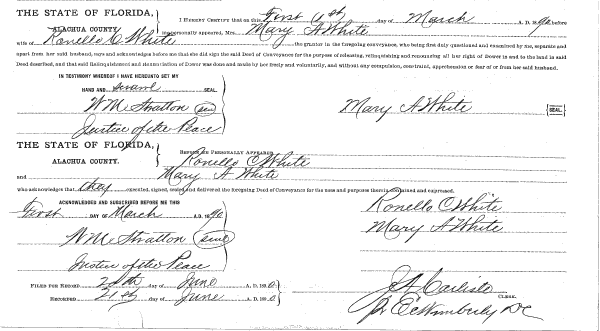 THE STATE OF FLORIDA, I HEREBY CERTIFY that on this First (1st) day of March A. D. 1890 before
ALACHUA COUNTY. me personally appeared, Mrs. Mary A White
wife of Ronello C White the grantor in the foregoing conveyance, who being first duly questioned and examined by me, separate and
apart from her said husband, says and acknowledges before me that she did sign the said Deed of Conveyance for the purpose of releasing, relinquishing and renouncing all her right of Dower in and to the land in said
Deed described, and that said Relinquishment and Renunciation of Dower was done and made by her freely and voluntarily, and without any compulsion, constraint, apprehension or fear of or from her said husband.
IN TESTIMONY WHEREOF I HAVE HEREUNTO SET MY
HAND AND SEAL.
W M Stratton (seal) Mary A White [SEAL.]
Justice of the Peace
THE STATE OF FLORIDA,
ALACHUA COUNTY. BEFORE ME PERSONALLY APPEARED Ronello C White
and Mary A White
who acknowledges that they executed, signed, sealed and delivered the foregoing Deed of Conveyance for the uses and purposes therein contained and expressed.
ACKNOWLEDGED AND SUBSCRIBED BEFORE ME THIS
First DAY OF March A.D. 1890 Ronello C White
W M Stratton (seal) Mary A White
Justice of the Peace
FILED FOR RECORD day of June A. D. 1890 J A Carlisle
RECORDED 21st day of June A. D. 1890 CLERK.
pr E C Wimberly DC